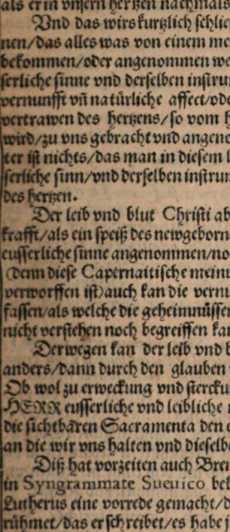 als er in vnsern hertzen nachmals
Vnd das wirs kurtzlich schlie
nen/das alles was von einem me
bekommen/oder angenommen we
serliche sinne vnd derselben instru
vernunfft vñ natürliche affect/ode
vertrawen des hertzens/so vom h
wird/zu vns gebracht vnd angeno
ter ist nichts/das man in diesem l
serliche sinn/vnd derselben instrum
des hertzen.
Der leib vnd blut Christi ab
krafft/als ein speiß des newgeborn
eusserliche sinne angenommen/no
(denn diese Capernaitische meinu
verworffen ist)auch kan die vernu
fassen/als welche die geheimnüssen
nicht verstehen noch begreiffen kan
Derwegen kan der leib vnd b
anders/dann durch den glauben
Ob wol zu erweckung vnd stercku
HERR eusserliche vnd leibliche
die sichtbaren Sacramenta den
an die wir vns halten vnd dieselbe
Diß hat vorzeiten auch Bren
in Syngrammate Sueuico bek
Lutherus eine vorrede gemacht/d
rühmet/das er schreibet/es habe j